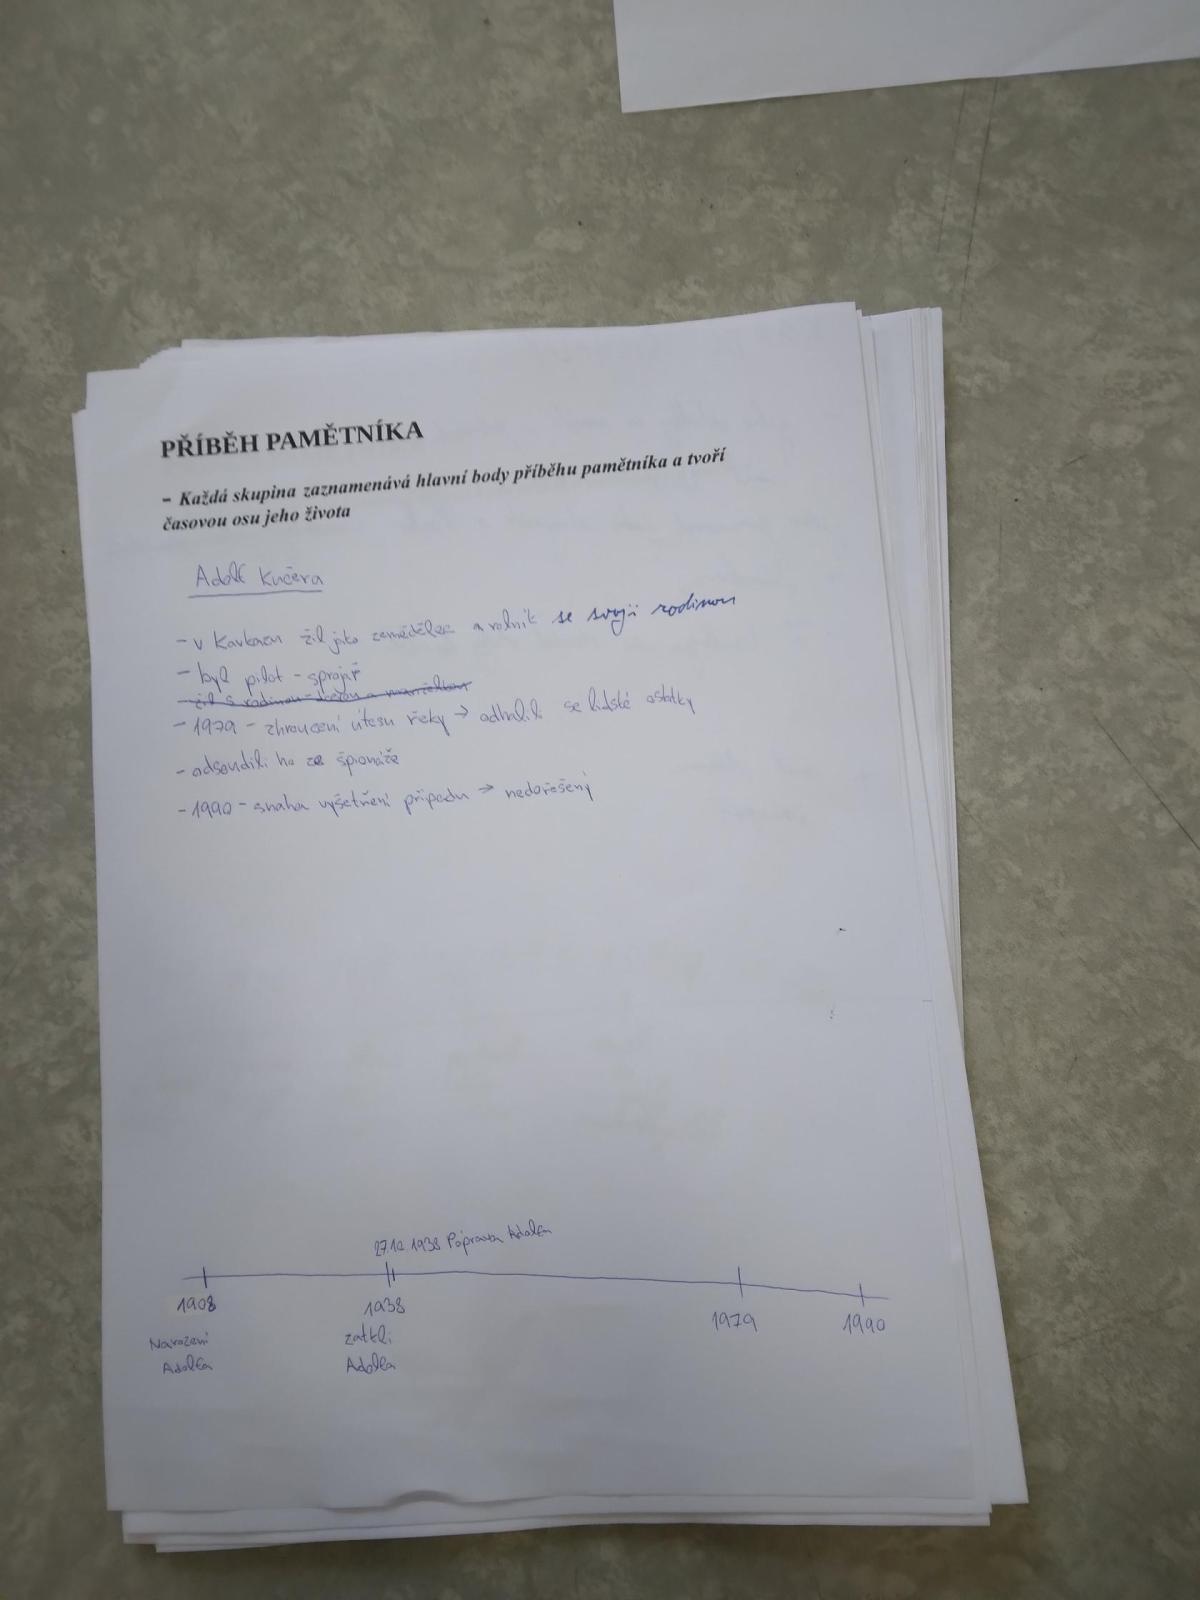 PŘÍBĚH PAMĚTNÍKA
– Každá skupina zaznamenává hlavní body příběhu pamětníka a tvoří
časovou osu jeho života
Adolf Kučera
- v Kavkazu žil jako zemědělec a rolník se svojí rodinou
- byl pilot - sprojář
žil s rodinou - dcerou a manželkou
- 1979 - zhroucení útesu řeky → odhalili se lidské ostatky
- odsoudili ho ze špionáže
- 1990 - snaha vyšetření případu → nedořešený
27.10. 1938 Poprava Adolfa
1908 1938 1979 1990
Narození zatkli
Adolfa Adolfa